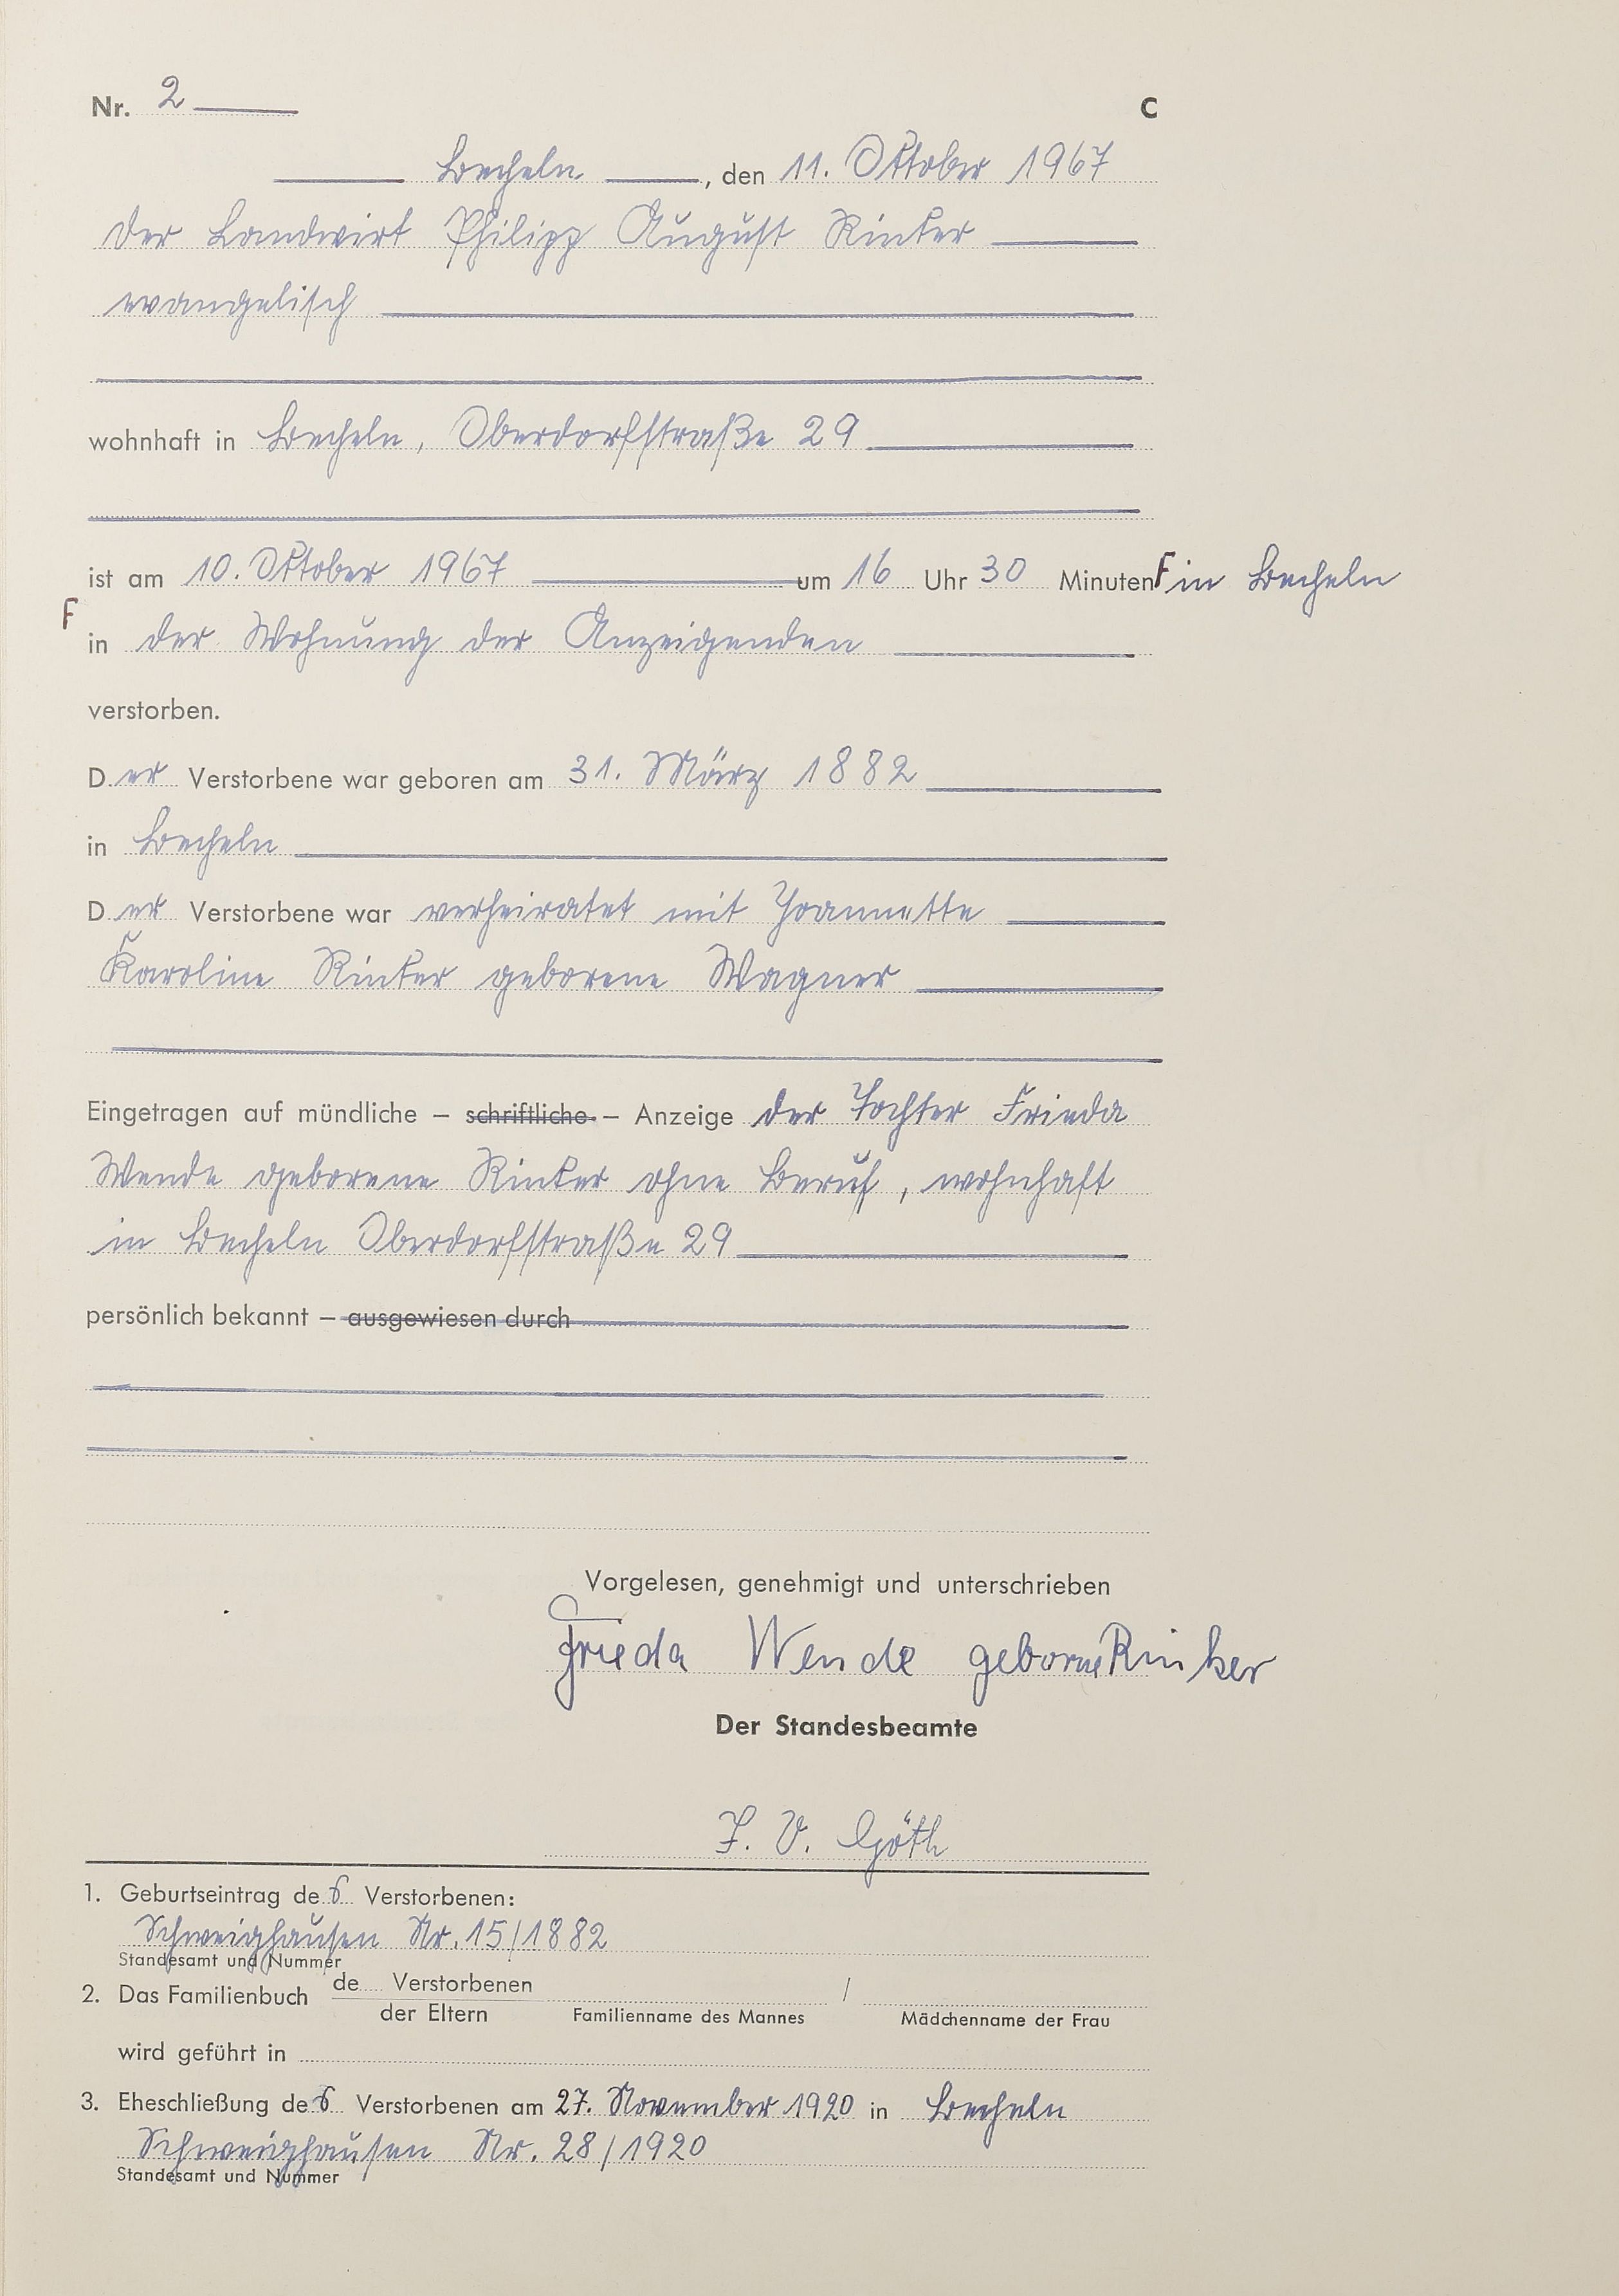 Nr. 2 C
Becheln, den 11. Oktober 1967
der Landwirt Philipp August Rinker
evangelisch
wohnhaft in Becheln, Oberdorfstraße 29
ist am 10. Oktober 1967 um 16 Uhr 30 Minuten F in Becheln
F
in der Wohnung der Anzeigenden
verstorben.
Der Verstorbene war geboren am 31. März 1882
in Becheln
Der Verstorbene war verheiratet mit Joannette
Karoline Rinker geborene Wagner
Eingetragen auf mündliche – schriftliche – Anzeige der Tochter Frieda
Wende geborene Rinker ohne Beruf, wohnhaft
in Becheln Oberdorfstraße 29
persönlich bekannt – ausgewiesen durch
Vorgelesen, genehmigt und unterschrieben
Frieda Wende geborne Rinker
Der Standesbeamte
I. V. Göth
1. Geburtseintrag des Verstorbenen:
Schweighausen Nr. 15/1882
Standesamt und Nummer
2. Das Familienbuch de Verstorbenen /
der Eltern Familienname des Mannes Mädchenname der Frau
wird geführt in
3. Eheschließung des Verstorbenen am 27. November 1920 in Becheln
Schweighausen Nr. 28/1920
Standesamt und Nummer